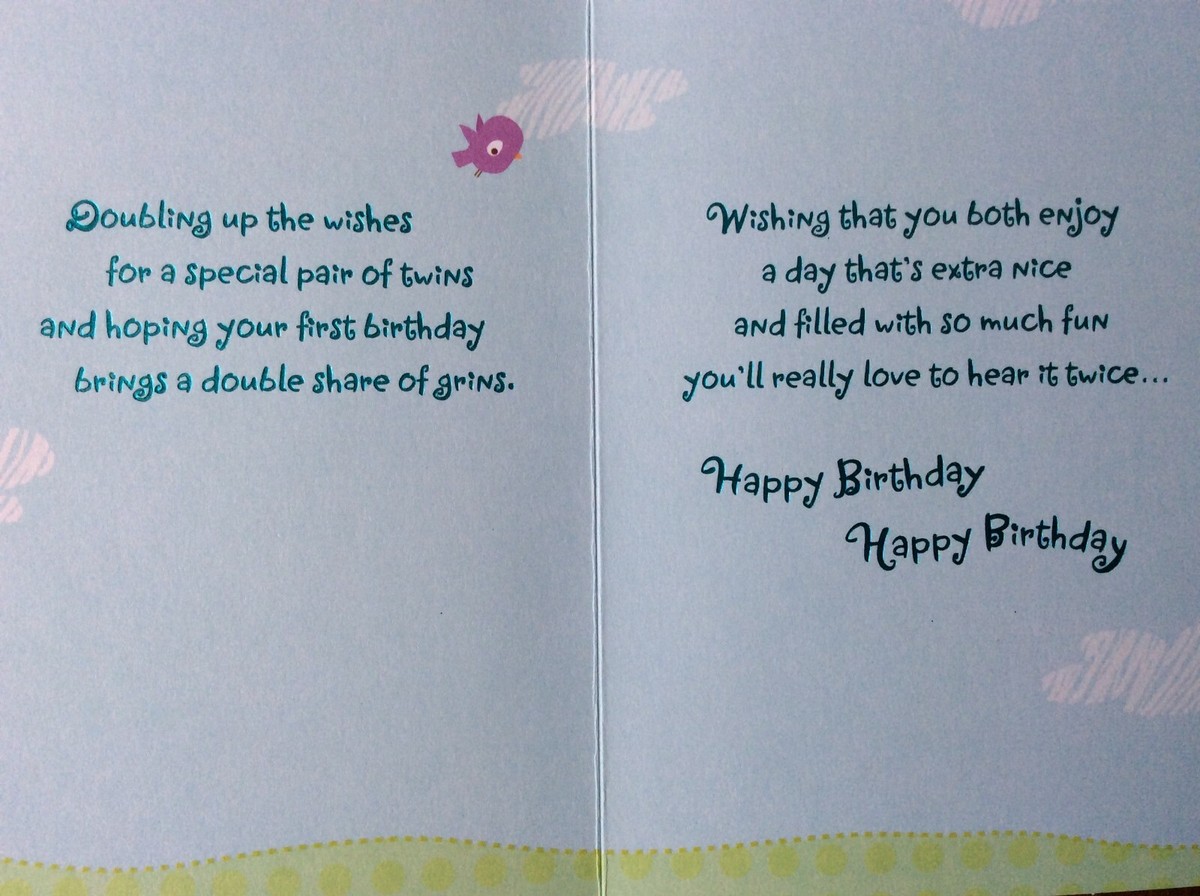 Doubling up the wishes
for a special pair of twins
and hoping your first birthday
brings a double share of grins.
Wishing that you both enjoy
a day that's extra nice
and filled with so much fun
you'll really love to hear it twice...
Happy Birthday
Happy Birthday